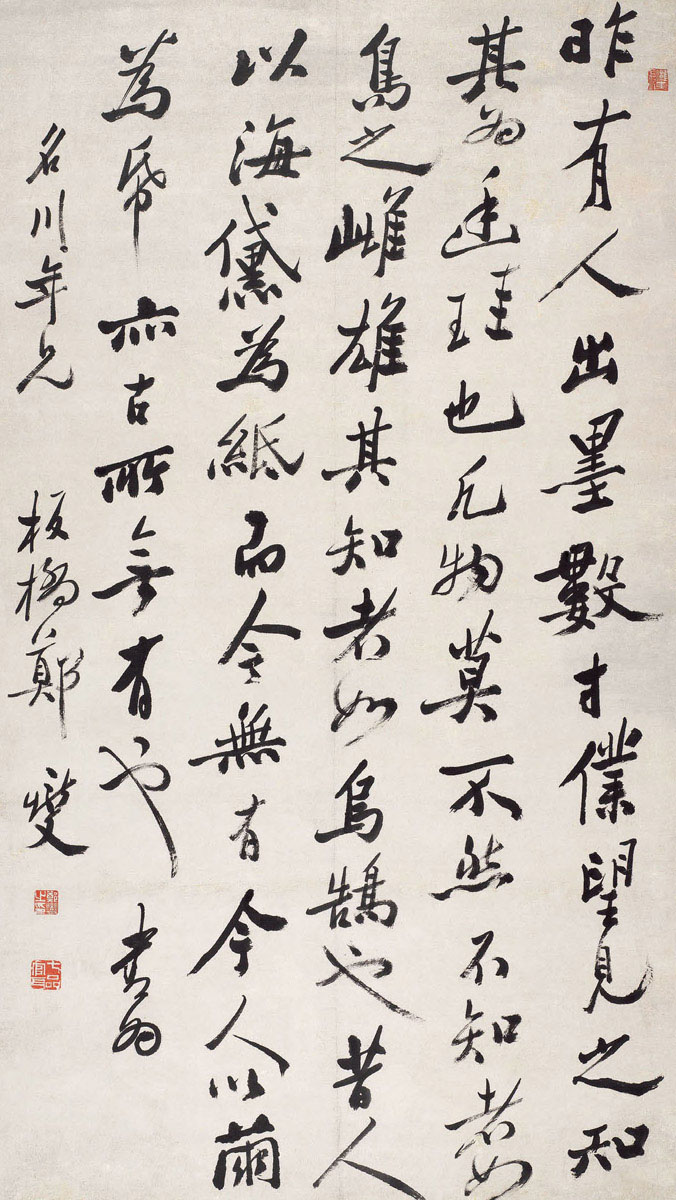 昨有人出墨數寸僕望見之知
其為廷珪也凡物莫不然不知者如
烏之雌雄其知者如烏鵠也昔人
以海黛為紙而今無有今人以繭
為帋亦古所無有也 書為
名川年兄 板橋鄭燮
鄭燮之印
七品官耳